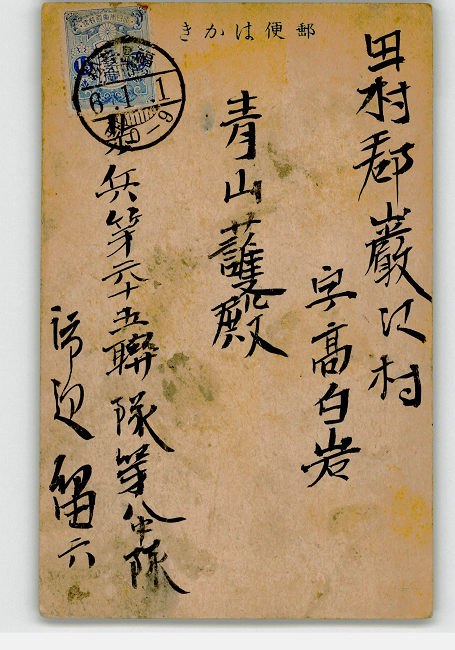 郵便はかき
田村郡巌江村
字高白岩
青山護殿
歩兵第六十五聯隊第八中隊
留六
6.1.1